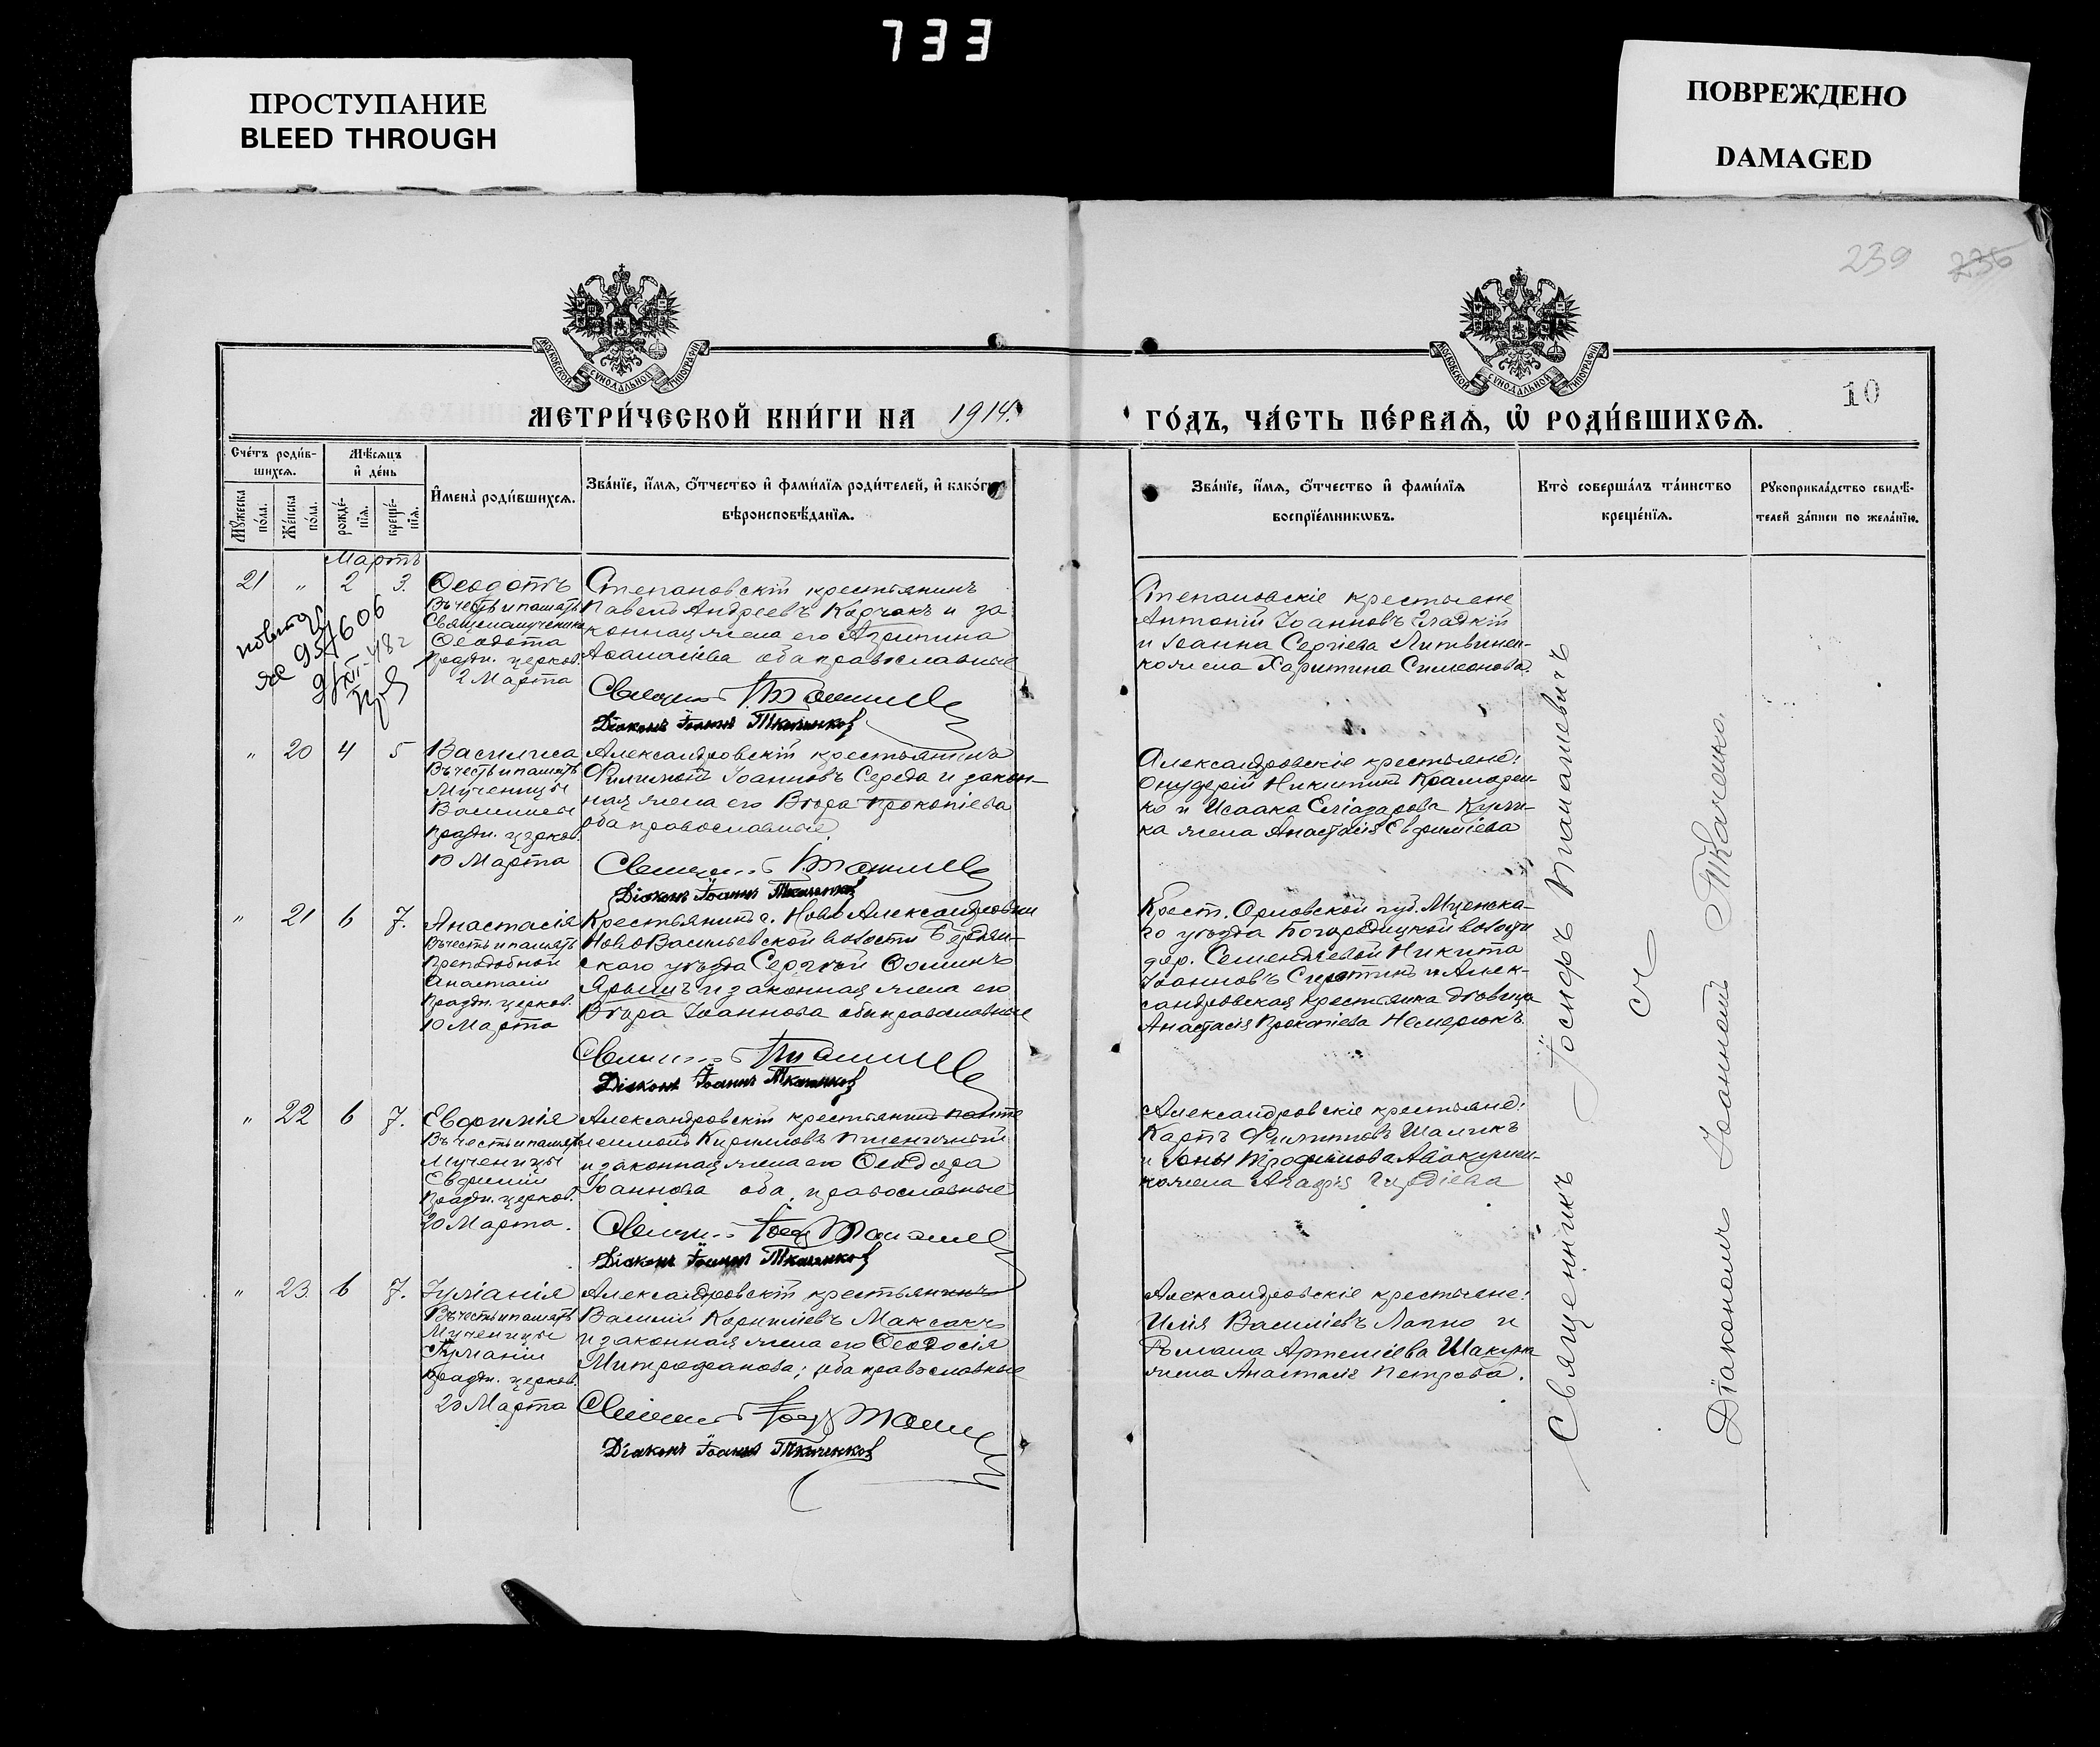 733
ПРОСТУПАНИЕ
BLEED THROUGH
ПОВРЕЖДЕНО
DAMAGED
239 236
10
МОСКОВСКОЙ СУНОДАЛЬНОЙ ТИПОГРАФІИ
МОСКОВСКОЙ СУНОДАЛЬНОЙ ТИПОГРАФІИ
МЕТРИ́ЧЕСКОЙ КНИ́ГИ НА 1914
ГО́ДЪ, ЧА́СТЬ ПЕ́РВАѦ, Ѿ РОДИ́ВШИХСѦ.
Сче́тъ роди́в-
шихсѧ.
Мꙋ́жеска по́ла.
Же́нска по́ла.
Мѣ́сѧцъ
и҆ де́нь
рожде́-
нїѧ.
креще́-
нїѧ.
И҆мена̀ роди́вшихсѧ.
Зва́нїе, и҆́мѧ, ѻ҆́тчество и҆ фами́лїѧ роди́телей, и҆ како́гѡ
вѣроисповѣ́данїѧ.
Зва́нїе, и҆́мѧ, ѻ҆́тчество и҆ фами́лїѧ
воспрїе́мникѡвъ.
Кто̀ соверша́лъ та́инство
креще́нїѧ.
Рꙋкоприкла́дство свидѣ́-
телей за́писи по жела́нїю.
Мартъ
21 " 2 3.
Ѳеодотъ
Въ честь и память
Священномученика
Ѳеодота
праздн. церков.
2 Марта
Степановскій крестьянинъ
Павелъ Андреевъ Корчакъ и за
конная жена его Агрипина
Аѳанасіева оба православные
Діаконъ Іоаннъ Ткаченковъ
Степановскіе крестьяне
Антоній Іоанновъ Гладкій
и Іоанна Сергіева Литвинен-
ко жена Харитина Симеонова.
" 20 4 5
Василиса
Въ честь и память
Мученицы
Василисы
праздн. церков.
10 Марта
Александровскій крестьянинъ
Филимонъ Іоанновъ Середа и закон-
ная жена его Вѣра Прокопіева
оба православные.
Діаконъ Іоаннъ Ткаченковъ
Александровскіе крестьяне:
Онуфрій Никитинъ Крамарен-
ко и Исаака Еліазарова Кули-
ка жена Анастасія Евфиміева
" 21 6 7.
Анастасія
Въ честь и память
Преподобной
Анастасіи
праздн. церков.
10 Марта
Крестьянинъ с. Ново Александровки
Ново Васильевской волости Бердян-
скаго уѣзда Сергѣй Ѳоминъ
Ярышъ и законная жена его
Вѣра Іоаннова оба православные
Діаконъ Іоаннъ Ткаченковъ
Крест. Орловской губ. Мценска-
го уѣзда Богородицкой волости
дер. Семендяевой Никита
Іоанновъ Сиротинъ и Алек-
сандровская крестьянка дѣвица
Анастасія Прокопіева Немерюкъ.
" 22 6 7.
Евфимія
Въ честь и память
Мученицы
Евфиміи
праздн. церков.
20 Марта.
Александровскій крестьянинъ Панте
леимонъ Кириловъ Пшеничный
и законная жена его Ѳеодора
Іоаннова оба православные
Діаконъ Іоаннъ Ткаченковъ
Александровскіе крестьяне:
Карпъ Филиповъ Шаликъ
и Іоны Трофимова Авакумен-
ко жена Агафія
" 23 6 7.
Іуліанія
Въ честь и память
Мученицы
Іуліаніи
праздн. церков.
20 Марта
Александровскій крестьянинъ
Василій Корниліевъ Максакъ
и законная жена его Ѳеодосія
Митрофанова; оба православные
Діаконъ Іоаннъ Ткаченковъ
Александровскіе крестьяне:
Илія Василіевъ Лапко и
Романа Артеміева Шакуна
жена Анастасія Петрова.
Священникъ Іосифъ Танашевичъ
съ
Діакономъ Іоанномъ Ткаченко.